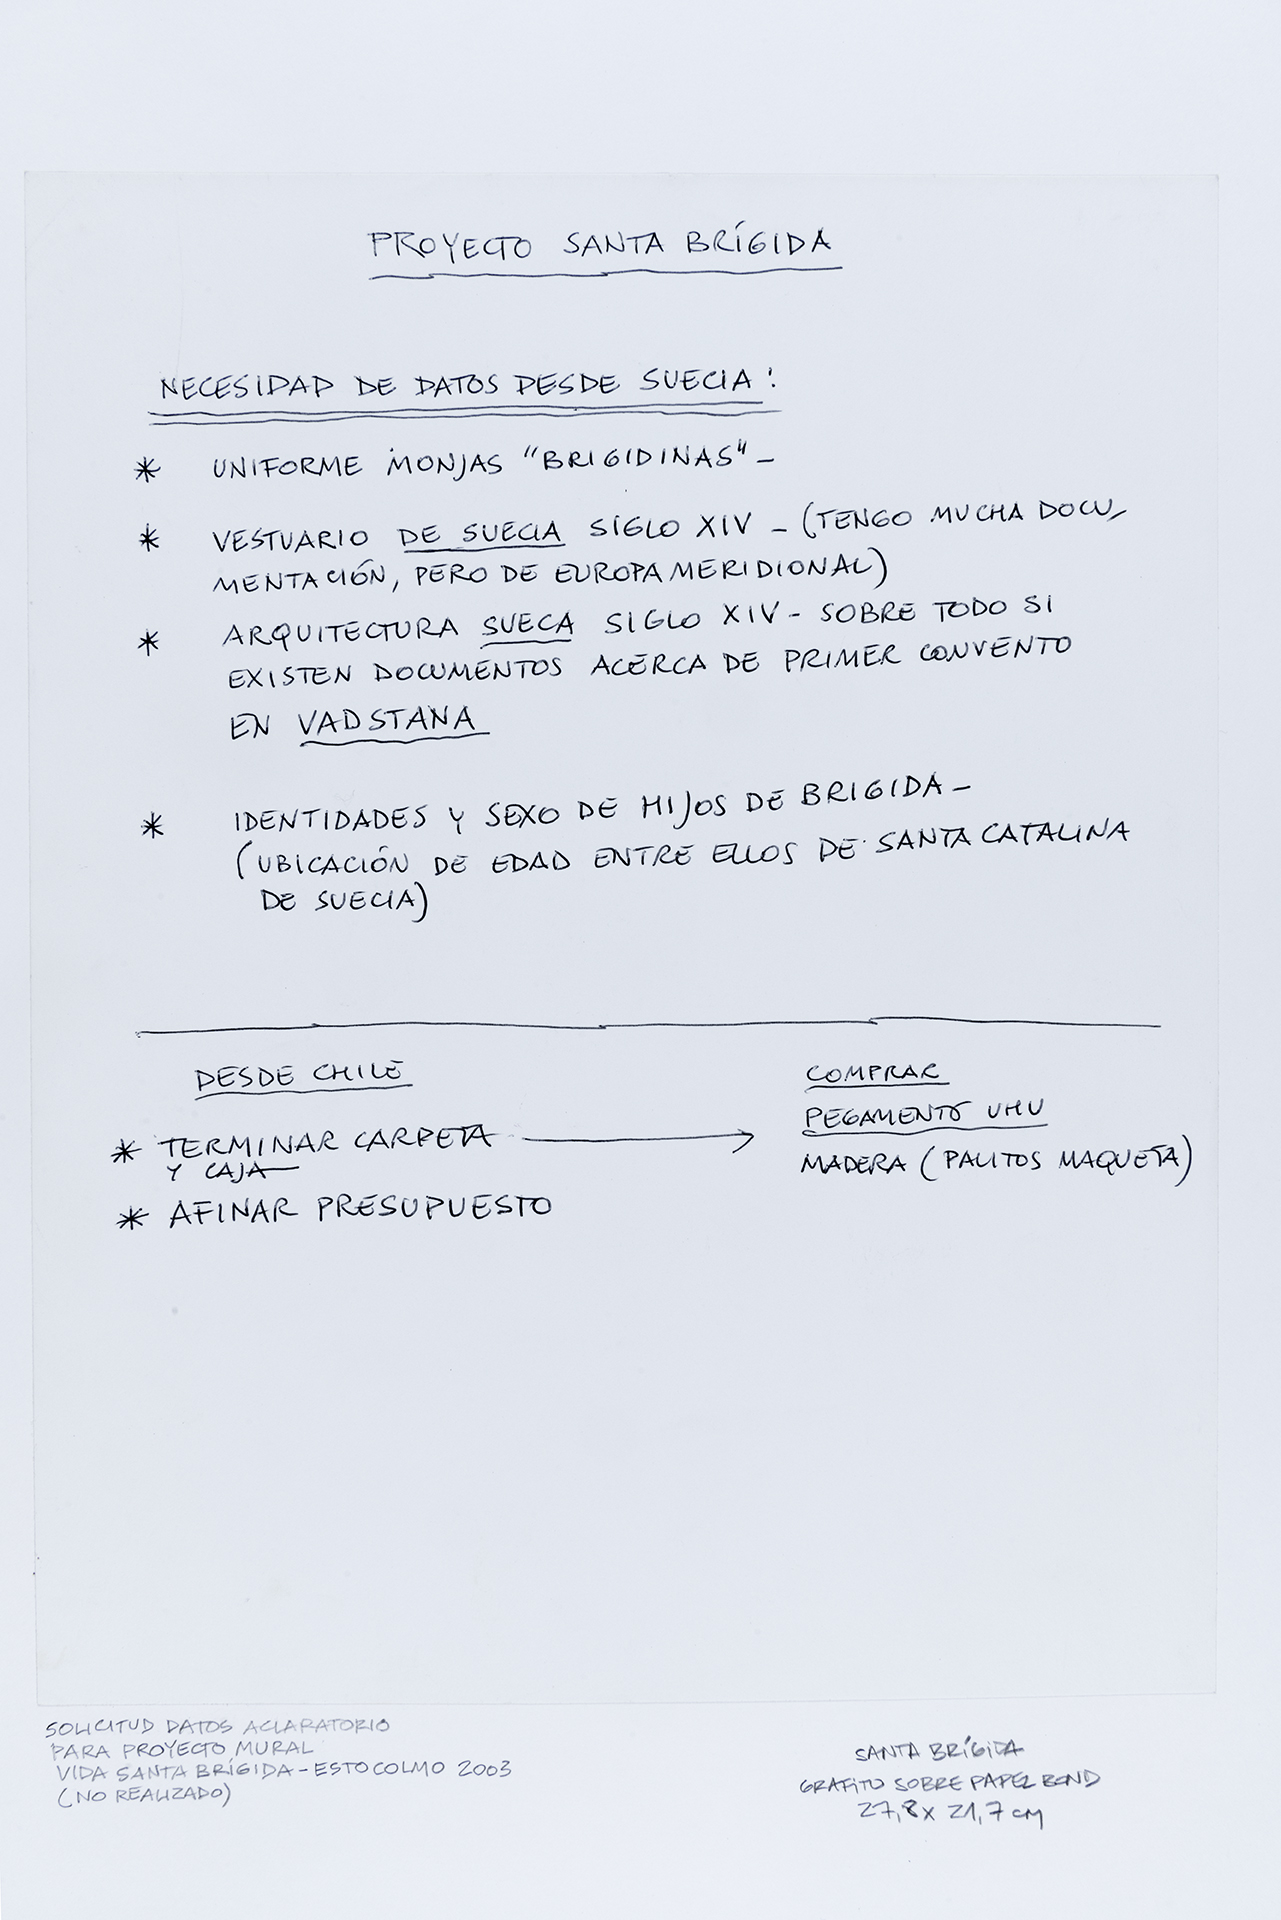 PROYECTO SANTA BRÍGIDA
NECESIDAD DE DATOS DESDE SUECIA:
* UNIFORME MONJAS "BRIGIDINAS" -
* VESTUARIO DE SUECIA SIGLO XIV - (TENGO MUCHA DOCU-
MENTACIÓN, PERO DE EUROPA MERIDIONAL)
* ARQUITECTURA SUECA SIGLO XIV - SOBRE TODO SI
EXISTEN DOCUMENTOS ACERCA DE PRIMER CONVENTO
EN VADSTANA
* IDENTIDADES Y SEXO DE HIJOS DE BRIGIDA -
(UBICACIÓN DE EDAD ENTRE ELLOS DE SANTA CATALINA
DE SUECIA)
DESDE CHILE
* TERMINAR CARPETA →
Y CAJA
* AFINAR PRESUPUESTO
COMPRAR
PEGAMENTO UHU
MADERA (PALITOS MAQUETA)
SOLICITUD DATOS ACLARATORIO
PARA PROYECTO MURAL
VIDA SANTA BRÍGIDA - ESTOCOLMO 2003
(NO REALIZADO)
SANTA BRÍGIDA
GRAFITO SOBRE PAPEL BOND
27,8 x 21,7 cm